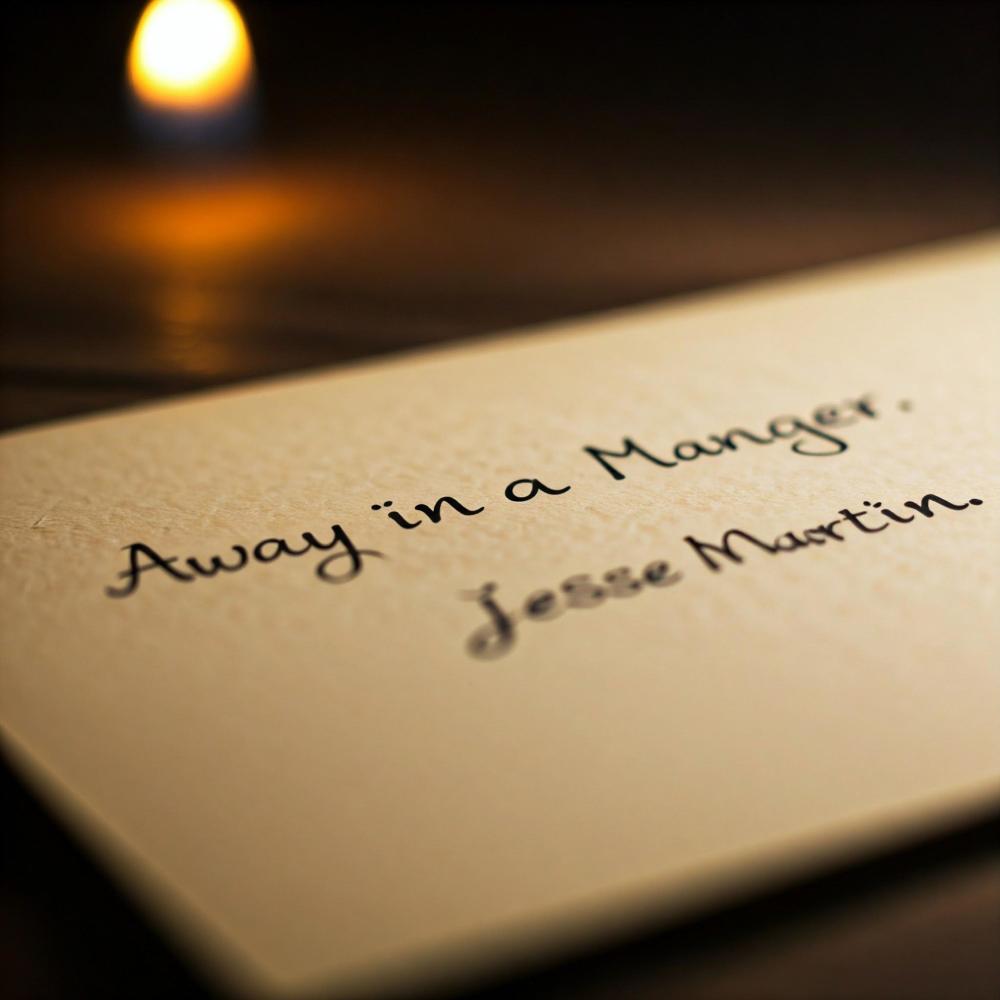 Away ïn a Manger.
Jesse Martïn.